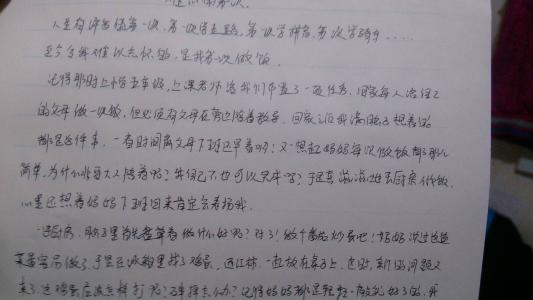 难忘的第一次
人生有许多个第一次,第一次学走路,第一次学拼音,第一次学骑车.....
至今令我难以忘怀的,是我第一次做饭。
记得那时上小学五年级,上课老师给我们布置了一项任务,回家每人给自己
的父母做一次饭,但必须有父母在旁边陪着指导。回家之后我满脑子想着的
都是这件事。一看时间离父母下班还早着呢!又一想起妈妈每次做饭都那么
简单,为什么非要大人陪着呢?我自己不也可以完成吗?于是兴滋滋地去厨房做饭。
心里还想着妈妈下班回来肯定会表扬我。
一进厨房,脑子里首先盘算着做什么好呢?对了!做个番茄炒蛋吧!妈妈说过这道
菜最容易做了,于是在冰箱里找了鸡蛋、西红柿,一起放在桌子上。这时,新的问题又
来了,这鸡蛋应该怎样打呢?怎样去办?记得妈妈都是轻轻一敲就好了的,